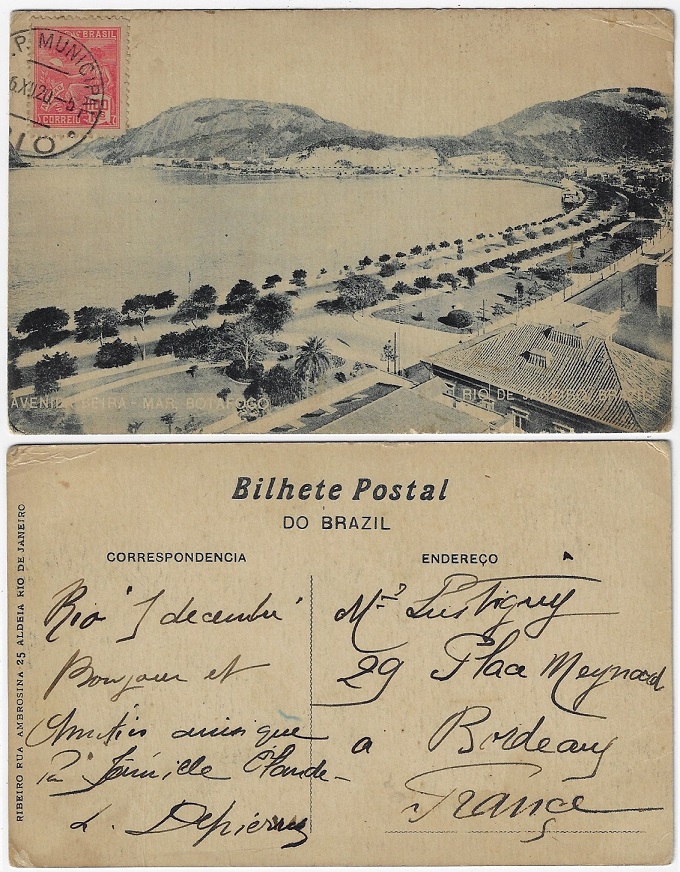 P. MUNICIPAL
BRASIL
6.XII.20
CORREIO
RIO
AVENIDA BEIRA - MAR, BOTAFOGO
RIO DE JANEIRO, BRAZIL
Bilhete Postal
DO BRAZIL
CORRESPONDENCIA
ENDEREÇO
RIBEIRO RUA AMBROSINA 25 ALDEIA RIO DE JANEIRO
Rio decembre
Bonjour et
Amitiés ainsi que
famille
29 Place Meynard
a Bordeaux
France